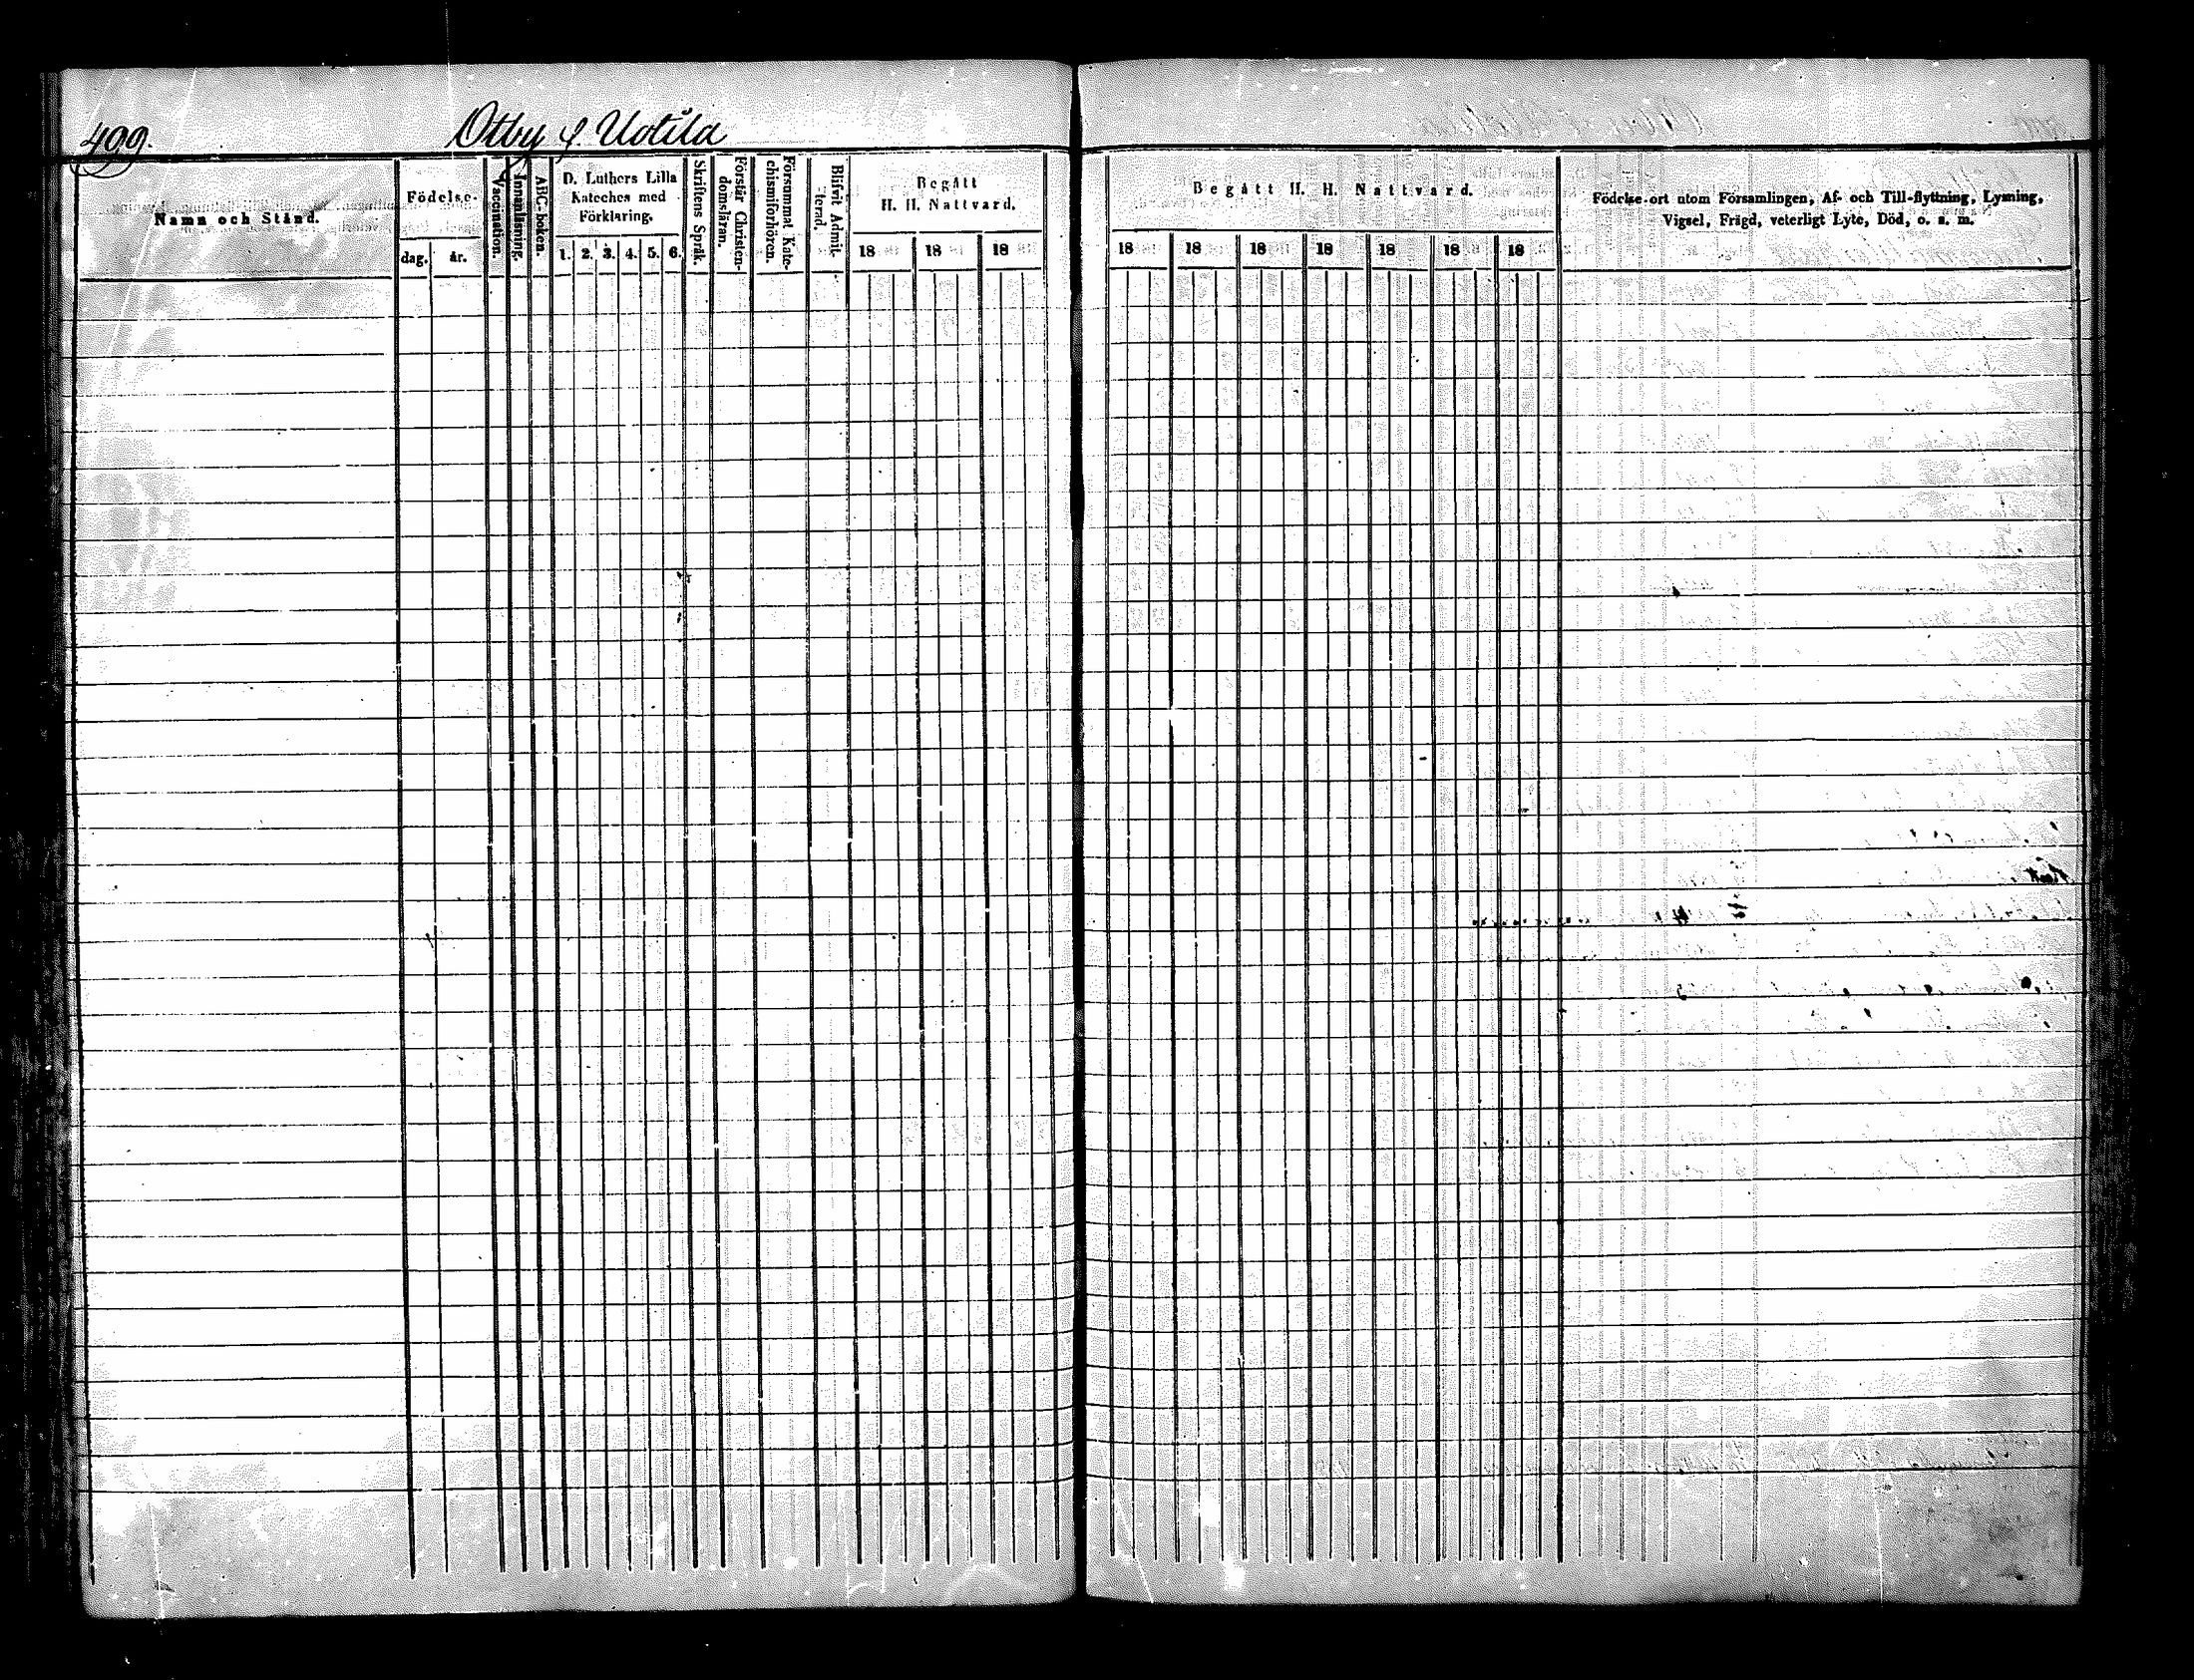 499.
Otby l. Uotila
Namn och Stånd.
Födelse-
dag.
år.
Vaccination.
Innanläsning.
ABC-boken.
D. Luthers Lilla
Kateches med
Förklaring.
1. 2. 3. 4. 5. 6.
Skriftens Språk.
Förstår Christen-
domsläran.
Försummat Kate-
chismiförhören.
Blifvit Admit-
terad.
Begått
H. H. Nattvard.
18 18 18
Begått H. H. Nattvard.
18 18 18 18 18 18 18
Födelse-ort utom Församlingen, Af- och Till-flyttning, Lysning,
Vigsel, Frägd, veterligt Lyte, Död, o. s. m.